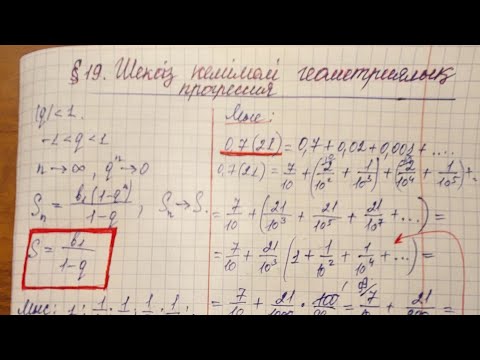 § 19. Шексіз кемімелі геометриялық
прогрессия
|q| < 1.
-1 < q < 1
n → ∞, qⁿ → 0
Sₙ = b₁(1-qⁿ) / 1-q, Sₙ → S.
S = b₁ / 1-q
Мыс:
0,7(21) = 0,7 + 0,02 + 0,001 + ....
0,7(21) = 7/10 + (2/10² + 1/10³) + (2/10⁴ + 1/10⁵) +
= 7/10 + (21/10³ + 21/10⁵ + 21/10⁷ + ...) =
= 7/10 + 21/10³ (1 + 1/10² + 1/10⁴ + ...) =
= 7/10 + 21/1000 · 100/99 = 7/10 + 21/990 =
Мыс: